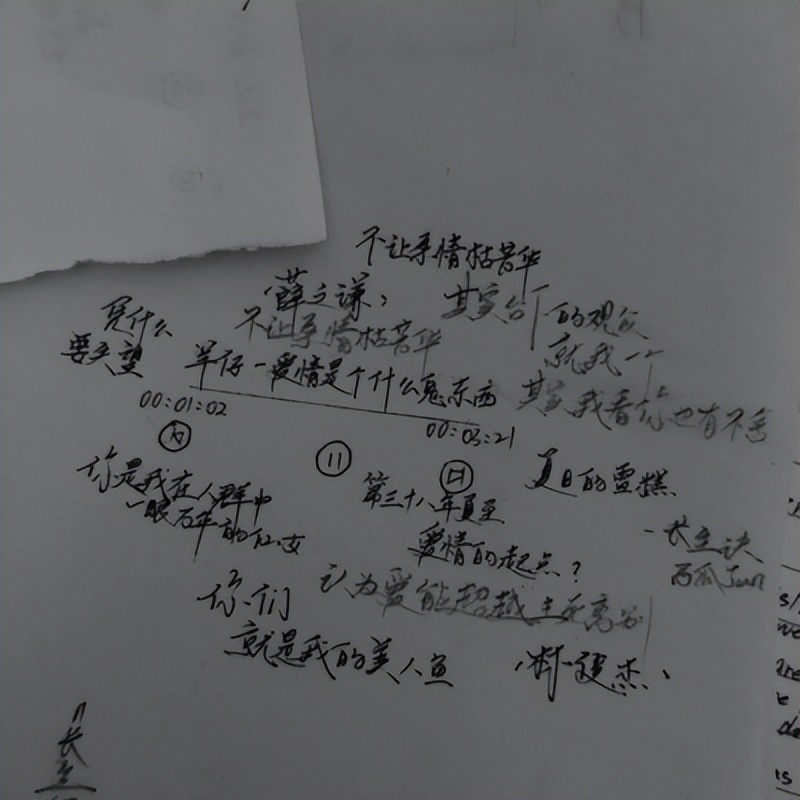 不让亲情枯萎华
(薛之谦)
其实台下的观众
就我一个
凭什么
要失望
不让亲情枯萎华
羊仔一爱情是个什么鬼东西
其实我看你也有不舍
00:01:02
00:03:21
11
你是我在人群中
一眼万年的
第三十八年夏至
爱情的起点?
夏日的雪糕
西瓜Jun
你们
认为爱能超越生死离别
就是我的美人鱼
(林俊杰)